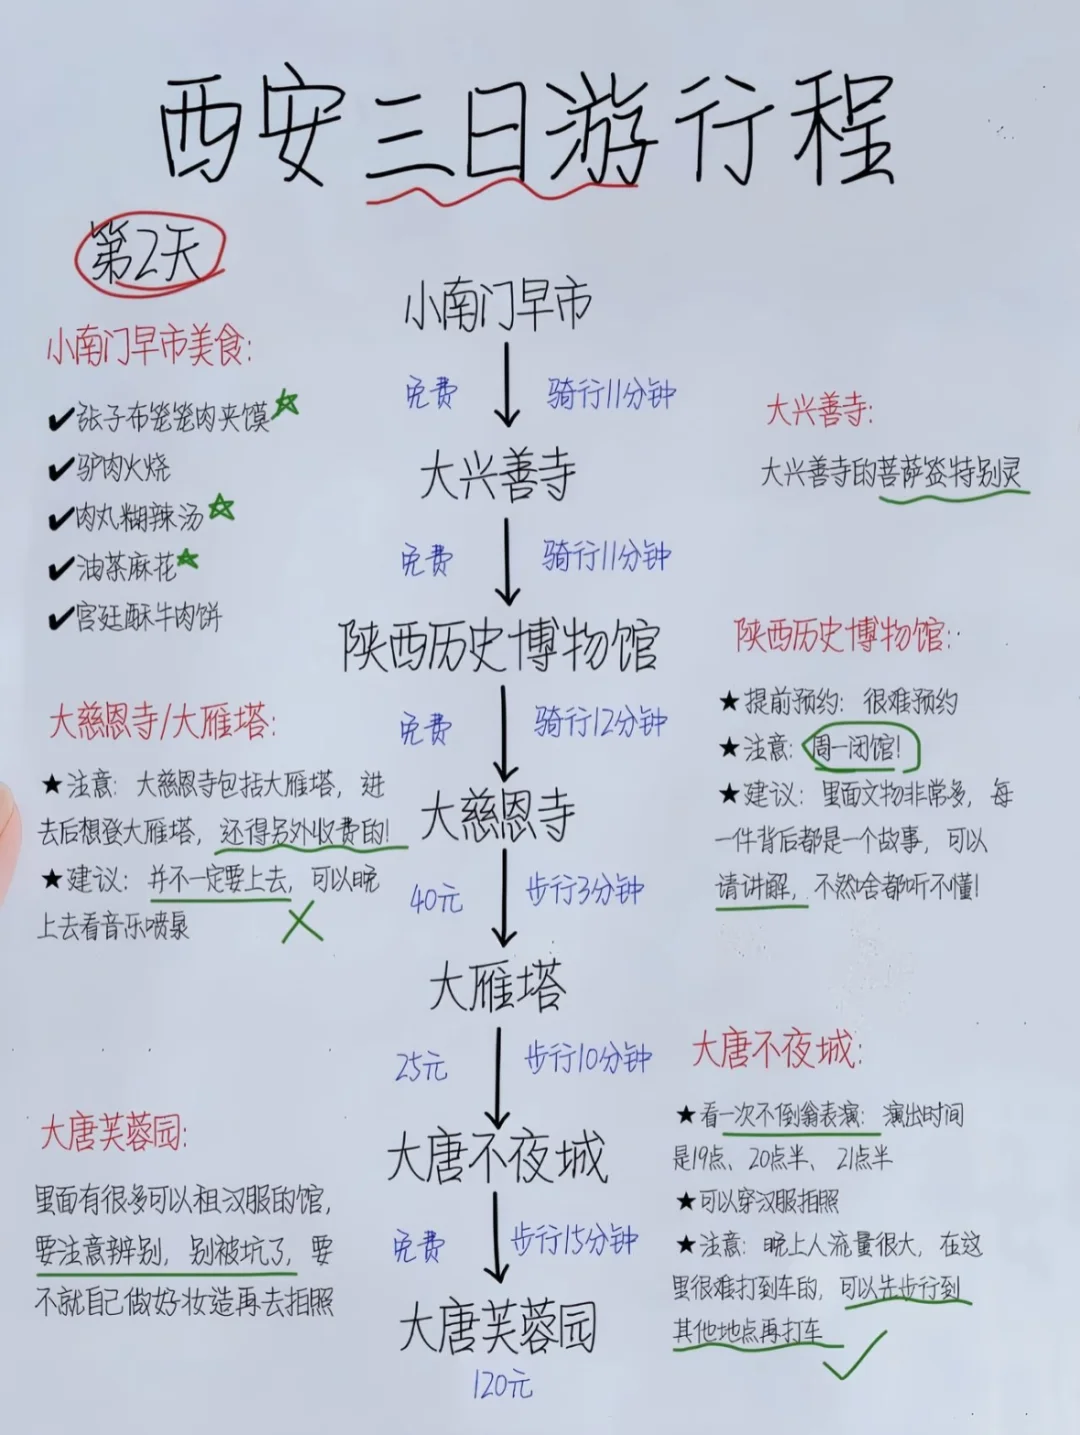 西安三日游行程
第2天
小南门早市美食:
✔张子布笼笼肉夹馍
✔驴肉火烧
✔肉丸糊辣汤
✔油茶麻花
✔宫廷酥牛肉饼
大慈恩寺/大雁塔:
★注意: 大慈恩寺包括大雁塔, 进
去后想登大雁塔, 还得另外收费的!
★建议: 并不一定要上去, 可以晚
上去看音乐喷泉
大唐芙蓉园:
里面有很多可以租汉服的馆,
要注意辨别, 别被坑了, 要
不就自己做好妆造再去拍照
小南门早市
免费 骑行11分钟
大兴善寺
免费 骑行11分钟
陕西历史博物馆
免费 骑行12分钟
大慈恩寺
40元 步行3分钟
大雁塔
25元 步行10分钟
大唐不夜城
免费 步行15分钟
大唐芙蓉园
120元
大兴善寺:
大兴善寺的菩萨签特别灵
陕西历史博物馆:
★提前预约: 很难预约
★注意: 周一闭馆!
★建议: 里面文物非常多, 每
一件背后都是一个故事, 可以
请讲解, 不然啥都听不懂!
大唐不夜城:
★看一次不倒翁表演: 演出时间
是19点、20点半、21点半
★可以穿汉服拍照
★注意: 晚上人流量很大, 在这
里很难打到车的, 可以先步行到
其他地点再打车